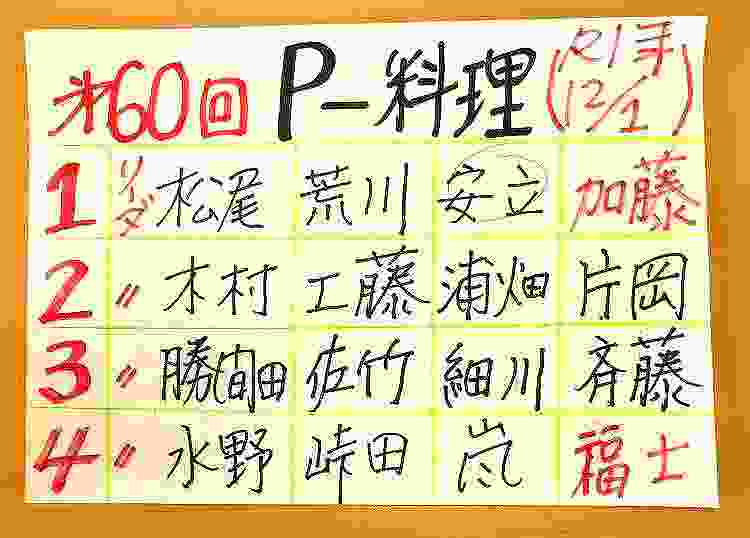 才60回 P-料理 (R1年 12/1)
1 リーダ 松尾 荒川 安立 加藤
2 〃 木村 工藤 浦畑 片岡
3 〃 勝間田 佐竹 細川 斉藤
4 〃 水野 峠田 嵐 福士